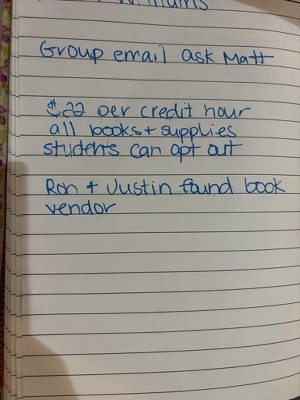 Williams
Group email ask Matt
$22 per credit hour
all books + supplies
students can opt out
Ron + Justin found book
vendor